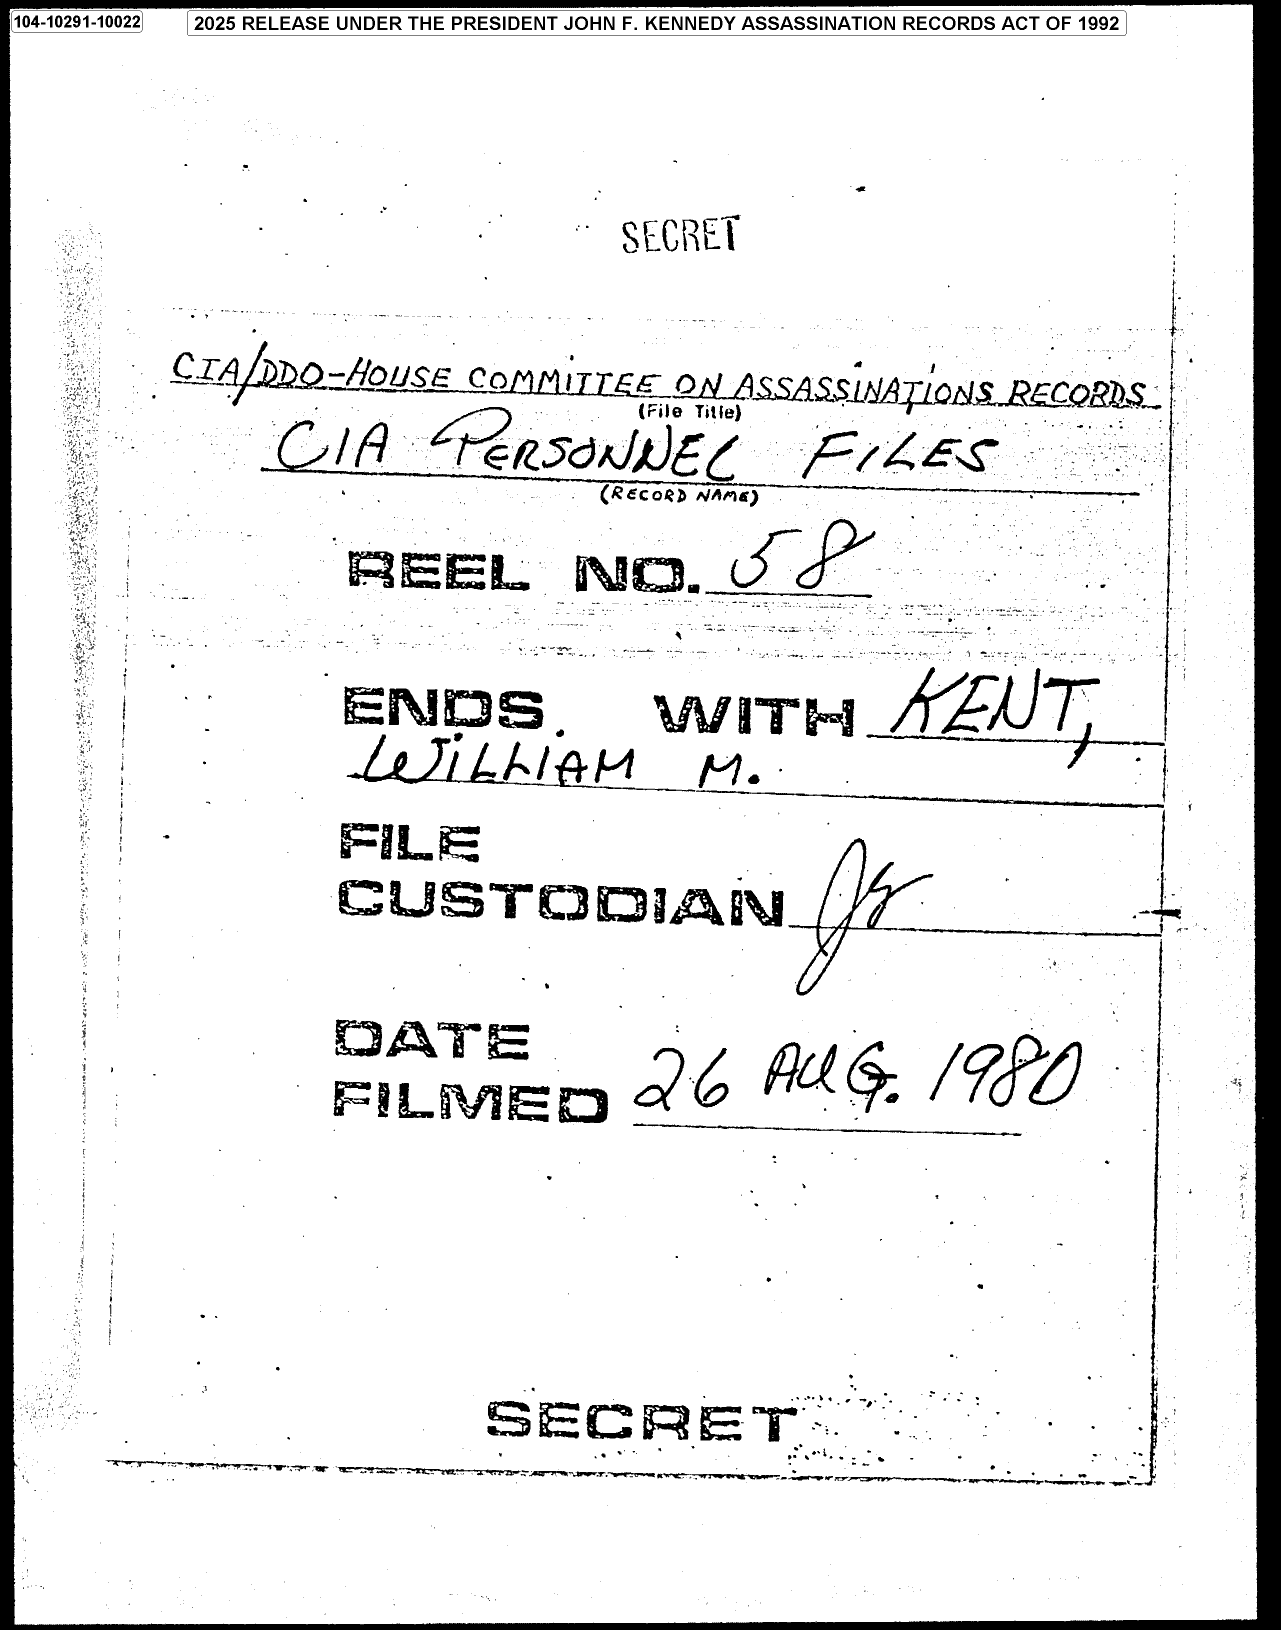 104-10291-10022
2025 RELEASE UNDER THE PRESIDENT JOHN F. KENNEDY ASSASSINATION RECORDS ACT OF 1992
SECRET
CIA/DDO-HOUSE COMMITTEE ON ASSASSINATIONS RECORDS
(File Title)
CIA PERSONNEL FILES
(RECORD NAME)
REEL NO. 58
ENDS. WITH KENT,
WILLIAM M.
FILE
CUSTODIAN
DATE
FILMED 26 AUG. 1980
SECRET